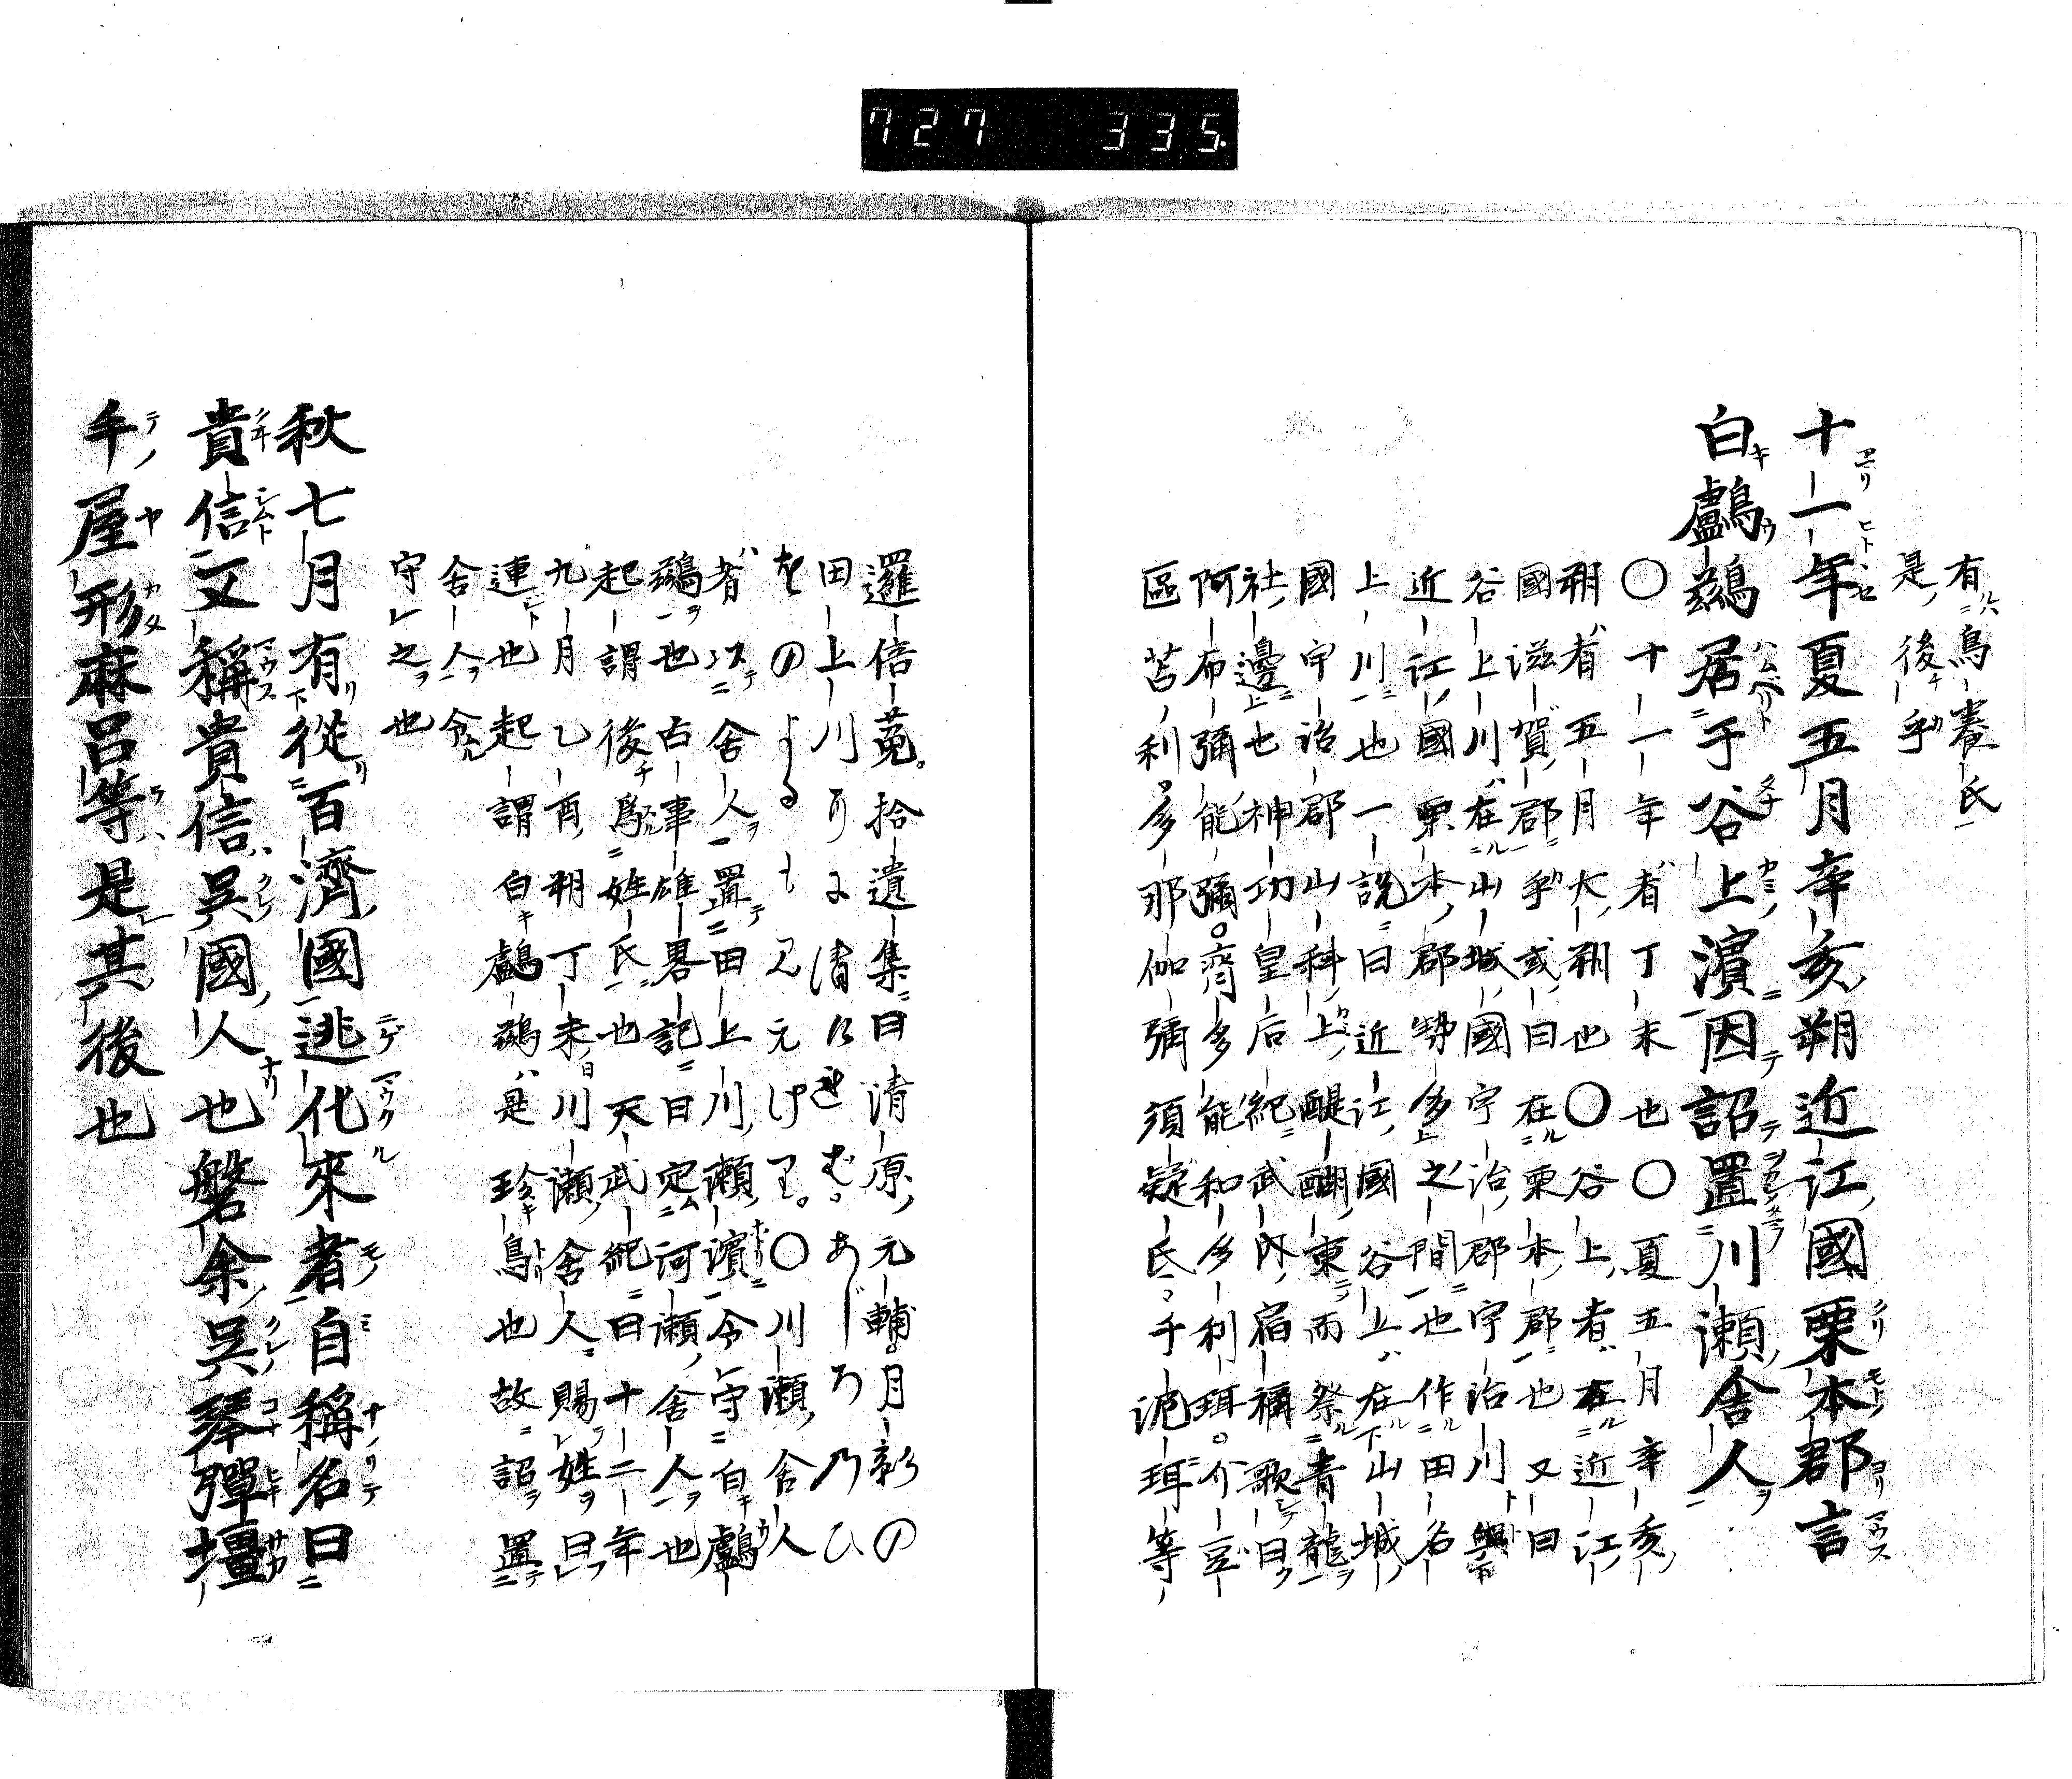 727 335
有鳥養氏
是後乎
十一年夏五月辛亥朔近江國栗本郡言
白鸕鷀居于谷上濱因詔置川瀬舎人
〇十一年者丁未也〇夏五月辛亥
朔者五月大朔也〇谷上者在近江
國滋賀郡乎或曰在栗本郡也又曰
谷上川在山城國宇治郡宇治川與
近江國栗本郡勢多之間也作田名
上川也一説曰近江國谷上在山城
國宇治郡山科上醍醐東而祭青龍
社邊也神功皇后紀武内宿禰歌曰
阿布彌能彌齊多能和多利珥介豆
區苫利多那伽彌須疑氏于泥珥等
邏倍菟拾遺集曰清原元輔月影の
田上川かに清けれむあじろのひ
をのよるも見えけり〇川瀬舎人
者以舎人置田上川瀬濱令守白鸕
鷀也古事雄畧記曰定河瀬舎人也
起謂後爲姓氏也天武紀曰十二年
九月乙酉朔丁未川瀬舎人賜姓曰
連也起謂白鸕鷀是珍鳥也故詔置
舎人令
守之也
秋七月有從百濟國逃化來者自稱名曰
貴信又稱貴信呉國人也磐余呉琴彈壇
手屋形麻呂等是其後也